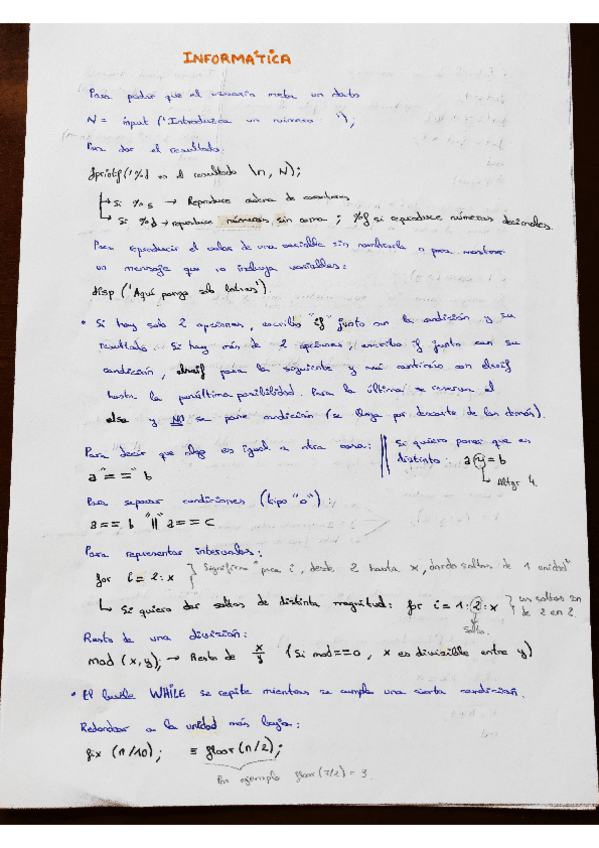 INFORMÁTICA
Para pedir que el usuario meta un dato
N = input ('Introduzca un número ');
Para dar el resultado
fprintf('%d es el resultado \n, N);
Si %s → Reproduce cadena de caracteres
Si %d → reproduce números sin coma ; %f si reproduce números decimales.
Para reproducir el valor de una variable sin nombrarla o para mostrar
un mensaje que no incluya variables:
disp ('Aquí pongo solo letras')
• Si hay solo 2 opciones, escribo "if" junto con la condición y su
resultado. Si hay más de 2 opciones, escribo if junto con su
condición, elseif para la siguiente y así continúo con elseif
hasta la penúltima posibilidad. Para la última se reserva el
else y NO se pone condición (se llega por descarte de los demás).
Para decir que algo es igual a otra cosa:
a "==" b
Si quiero poner que es
distinto: a ~= b
Altgr 4
Para separar condiciones (tipo "o"):
a == b "||" a == c
Para representar intervalos:
for i = 2:x } Significa "para i, desde 2 hasta x, dando saltos de 1 unidad"
Si quiero dar saltos de distinta magnitud: for i = 1:2:x } los saltos son
de 2 en 2.
Salto
Resto de una división:
mod (x,y); → Resto de x/y (Si mod==0, x es divisible entre y)
• El bucle WHILE se repite mientras se cumpla una cierta condición.
Redondear a la unidad más baja:
fix (n/10); ≡ floor(n/2);
Por ejemplo floor(7/2) = 3.